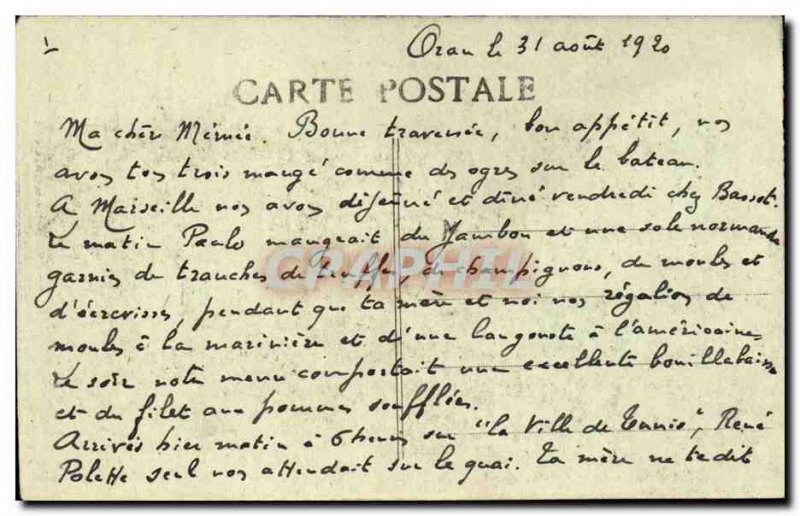 Oran le 31 août 1920
CARTE POSTALE
Ma chère Mémée. Bonne traversée, bon appétit, nos
avons tos trois mangé comme des ogres sur le bateau.
A Marseille nos avons déjeûné et dîné vendredi chez Basso.
Le matin Paulo mangeait du Jambon et une sole normande
garnie de tranches de truffes, de champignons, de moules et
d'écrevisses, pendant que ta mère et moi nos régalions de
moules à la marinière et d'une langouste à l'américaine
Le soir notre menu comportait une excellente bouillabaisse
et du filet aux pommes soufflées.
Arrivés hier matin à 6 heures sur "la Ville de Tunis", René
Polette seul nos attendait sur le quai. Ta mère ne te dit
CPAPHIL